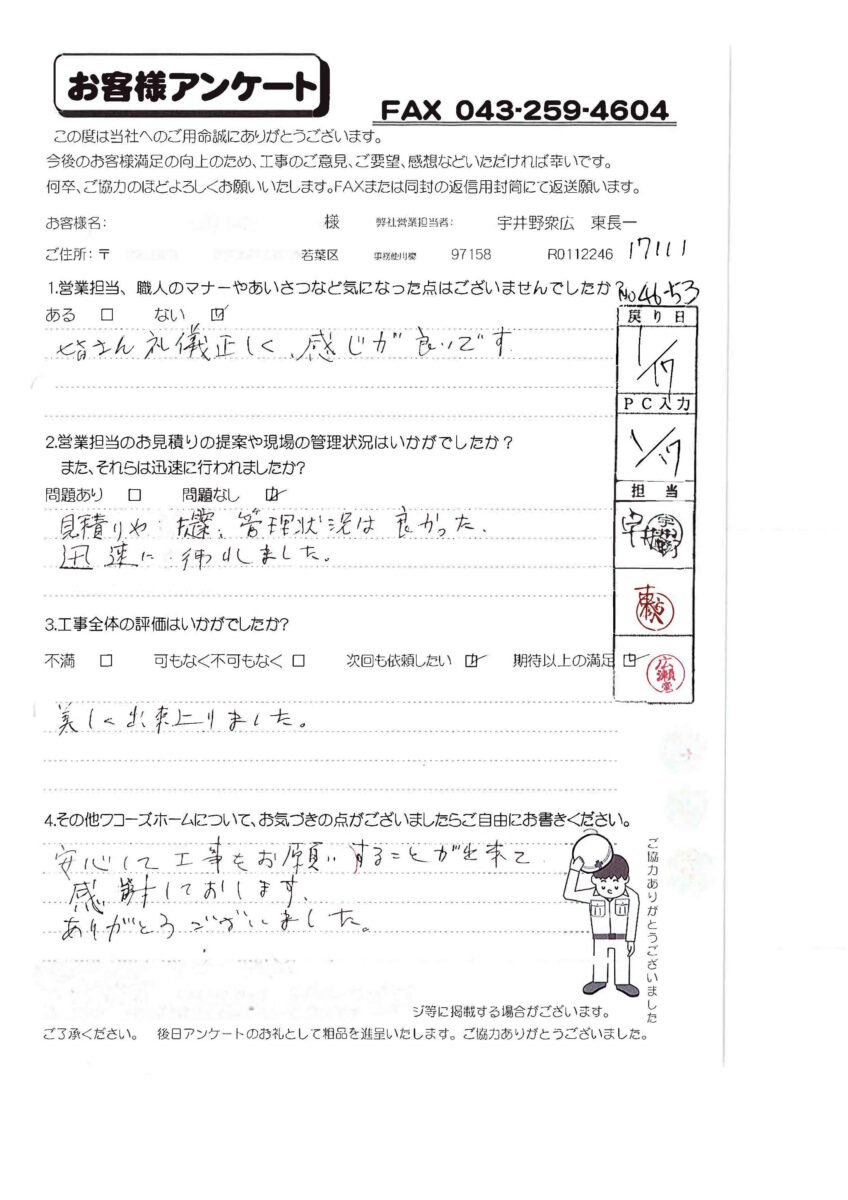 お客様アンケート
FAX 043-259-4604
この度は当社へのご用命誠にありがとうございます。
今後のお客様満足の向上のため、工事のご意見、ご要望、感想などいただければ幸いです。
何卒、ご協力のほどよろしくお願いいたします。FAXまたは同封の返信用封筒にて返送願います。
お客様名: 様 弊社営業担当者: 宇井野衆広 東長一
ご住所:〒 若葉区 97158 R0112246 17111
1.営業担当、職人のマナーやあいさつなど気になった点はございませんでしたか? No4653
ある □ ない ☑
皆さん礼儀正しく、感じが良いです
戻り日
1/17
PC入力
1/17
担当
2.営業担当のお見積りの提案や現場の管理状況はいかがでしたか?
また、それらは迅速に行われましたか?
問題あり □ 問題なし ☑
見積りや提案、管理状況は良かった、
迅速に行われました。
宇井野
3.工事全体の評価はいかがでしたか?
不満 □ 可もなく不可もなく □ 次回も依頼したい ☑ 期待以上の満足 ☑
美しく出来上りました。
4.その他ワコーズホームについて、お気づきの点がございましたらご自由にお書きください。
安心して工事をお願いすることが出来て
感謝しております、
ありがとうございました。
ご協力ありがとうございました
ジ等に掲載する場合がございます。
ご了承ください。 後日アンケートのお礼として粗品を進呈いたします。ご協力ありがとうございました。